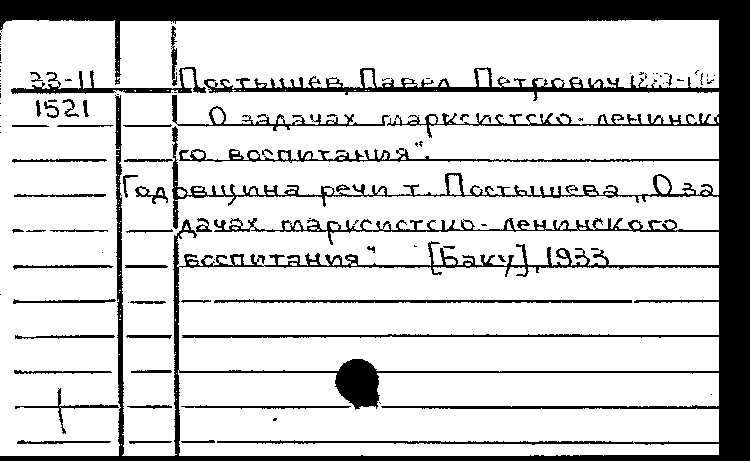 33-11 Постышев, Павел Петрович
1521 О задачах марксистско-ленинско
го воспитания".
Годовщина речи т. Постышева „О за
дачах марксистско-ленинского
воспитания" [Баку], 1933